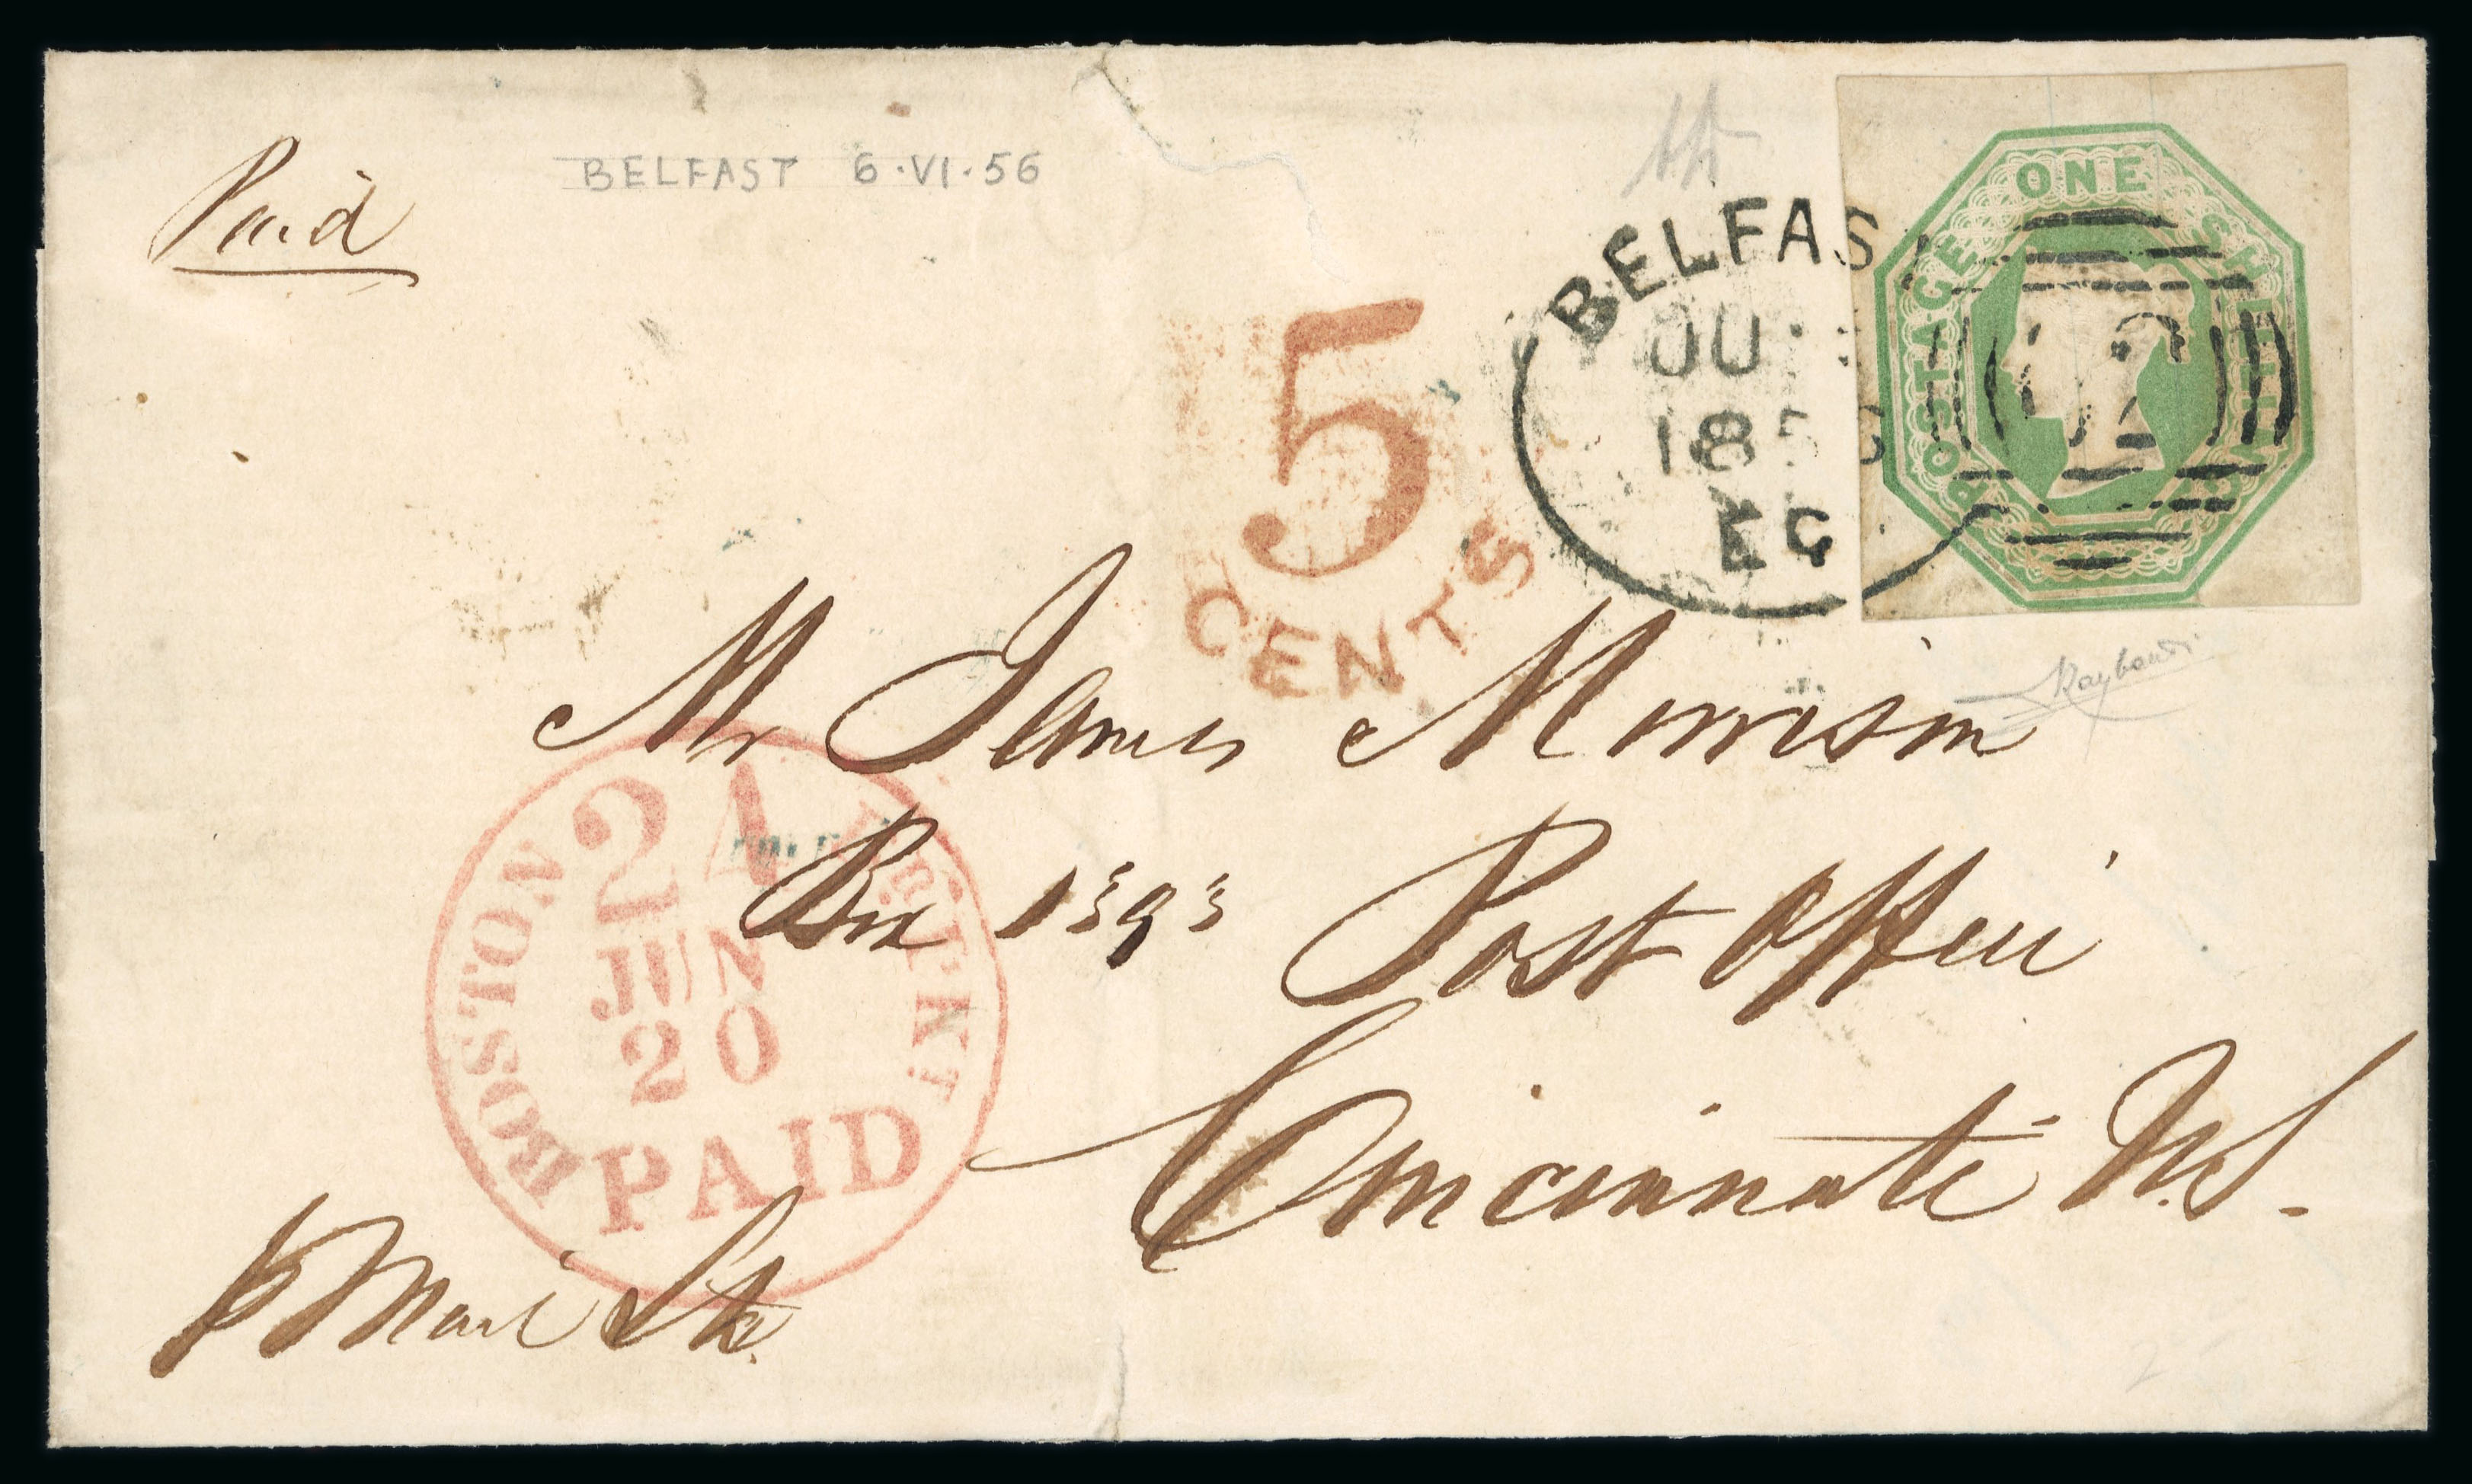 Paid
BELFAST 6·VI·56
ONE SHILLING
POSTAGE
BELFAS
JU
1856
EC
62
5
CENTS
Raybaudi
Mr James Morrison
Box
Post Office
Cincinnati U.S.
BOSTON Br. PKT.
24
JUN
20
PAID
p Mail Str.